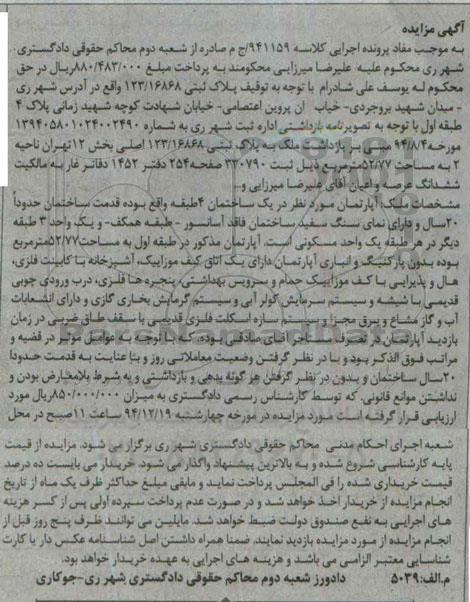 آگهی مزایده
به موجب مفاد پرونده اجرایی کلاسه ۹۴۱۱۵۹/ج م صادره از شعبه دوم محاکم حقوقی دادگستری
شهر ری محکوم علیه علیرضا میرزایی محکومند به پرداخت مبلغ ۸۸۰/۴۸۳/۰۰۰ریال در حق
محکوم له یوسف علی شادرام با توجه به توقیف پلاک ثبتی ۱۲۳/۱۶۸۶۸ واقع در آدرس شهر ری
- میدان شهید بروجردی- خیاب ان پروین اعتصامی- خیابان شهادت کوچه شهید زمانی پلاک ۴
طبقه اول با توجه به تصویرنامه بازداشتی اداره ثبت شهر ری به شماره ۱۳۹۴۰۵۸۰۱۰۲۴۰۰۲۴۹۰
مورخه۹۴/۸/۴ مبنی بر بازداشت ملک به پلاک ثبتی ۱۲۳/۱۶۸۶۸ اصلی بخش ۱۲تهران ناحیه
۲ به مساحت ۵۲/۷۷مترمربع ذیل ثبت ۳۳۰۷۹۰ صفحه۲۵۴ دفتر ۱۴۵۲ دفاتر غار به مالکیت
ششدانگ عرصه و اعیان آقای علیرضا میرزایی و..
مشخصات ملک: آپارتمان مورد نظر در یک ساختمان ۴طبقه واقع بوده قدمت ساختمان حدوداً
۲۰سال و دارای نمای سنگ سفید ساختمان فاقد آسانسور - طبقه همکف- و یک واحد ۳ طبقه
دیگر در هر طبقه یک واحد مسکونی است. آپارتمان مذکور در طبقه اول به مساحت۵۲/۷۷مترمربع
بوده بدون پارکینگ و انباری آپارتمان دارای یک اتاق کیف موزاییک، آشپزخانه با کابینت فلزی،
هال و پذیرایی با کف موزاییک حمام و سرویس بهداشتی، پنجره ها فلزی، درب ورودی چوبی
قدیمی با شیشه و سیستم سرمایش کولر آبی و سیستم گرمایش بخاری گازی و دارای انشعابات
آب و گاز مشاع و برق مجزا و سیستم سازه اسکلت فلزی قدیمی با سقف طاق ضربی در زمان
بازدید آپارتمان در تصرف مستاجر آقای صادقی بوده، که با توجه به عوامل موثر در قضیه و
مراتب فوق الذکر بود و با در نظر گرفتن وضعیت معاملاتی روز و بنا عنایت به قدمت حدودا
۲۰سال ساختمان و بدون در نظر گرفتن هر گونه بدهی و بازداشتی و به شرط بلامعارض بودن و
نداشتن موانع قانونی، که توسط کارشناس رسمی دادگستری به میزان ۸۵۰/۰۰۰/۰۰۰ریال مورد
ارزیابی قرار گرفته است مورد مزایده در مورخه چهارشنبه ۹۴/۱۲/۱۹ ساعت ۱۱صبح در محل
شعبه اجرای احکام مدنی محاکم حقوقی دادگستری شهر ری برگزار می شود. مزایده از قیمت
پایه کارشناسی شروع شده و به بالاترین پیشنهاد واگذار می شود. خریدار می بایست ده درصد
قیمت خریداری شده را فی المجلس پرداخت نماید و مابقی مبلغ حداکثر ظرف یک ماه از تاریخ
انجام مزایده از خریدار اخذ خواهد شد و در صورت عدم پرداخت سپرده اولی پس از کسر هزینه
های اجرایی به نفع صندوق دولت ضبط خواهد شد. مایلین می توانند ظرف پنج روز قبل از
انجام مزایده از مورد مزایده بازدید نمایند. ضمنا همراه داشتن اصل شناسنامه عکس دار یا کارت
شناسایی معتبر الزامی می باشد و هزینه های اجرایی به عهده خریدار خواهد بود.
م.الف:۵۰۳۹ دادورز شعبه دوم محاکم حقوقی دادگستری شهر ری-جوکاری